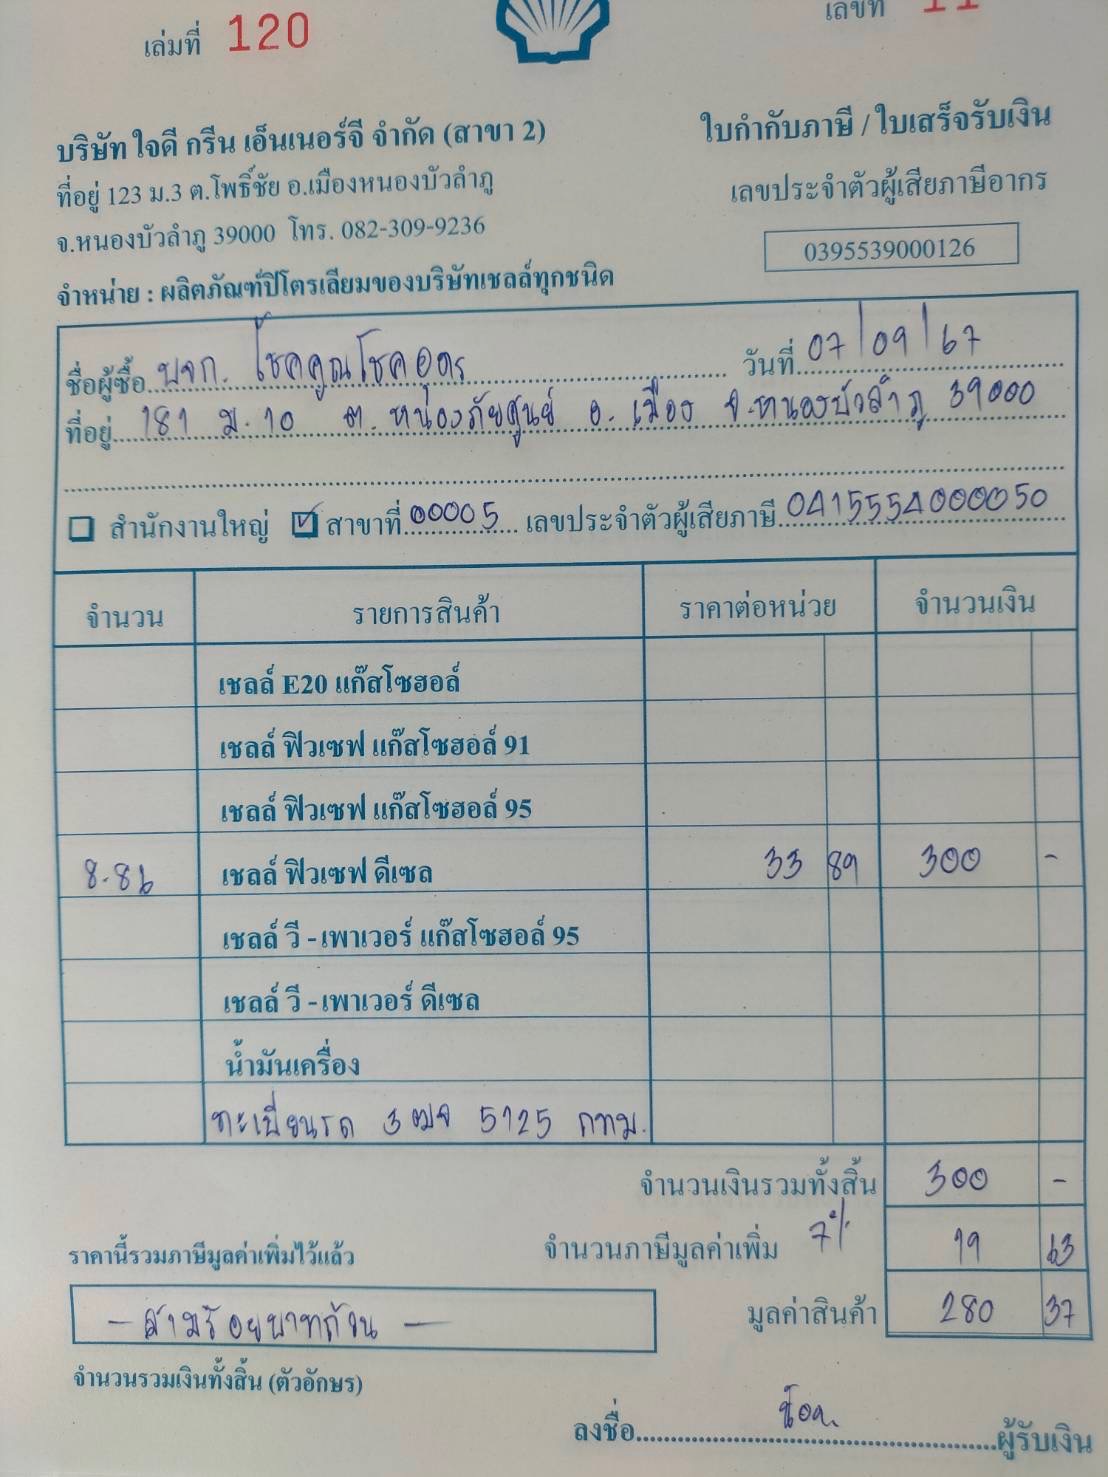 เล่มที่ 120
เลขที่ 11
บริษัท ใจดี กรีน เอ็นเนอร์จี จำกัด (สาขา 2)
ใบกำกับภาษี / ใบเสร็จรับเงิน
ที่อยู่ 123 ม.3 ต.โพธิ์ชัย อ.เมืองหนองบัวลำภู
เลขประจำตัวผู้เสียภาษีอากร
จ.หนองบัวลำภู 39000 โทร. 082-309-9236
0395539000126
จำหน่าย : ผลิตภัณฑ์ปิโตรเลียมของบริษัทเชลล์ทุกชนิด
ชื่อผู้ซื้อ หจก. โชคคูณโชคอุดร วันที่ 07/09/67
ที่อยู่ 181 ม.10 ต. หนองภัยศูนย์ อ. เมือง จ.หนองบัวลำภู 39000
สำนักงานใหญ่ ☑ สาขาที่ 00005 เลขประจำตัวผู้เสียภาษี 0415554000050
จำนวน รายการสินค้า ราคาต่อหน่วย จำนวนเงิน
เชลล์ E20 แก๊สโซฮอล์
เชลล์ ฟิวเซฟ แก๊สโซฮอล์ 91
เชลล์ ฟิวเซฟ แก๊สโซฮอล์ 95
8.86 เชลล์ ฟิวเซฟ ดีเซล 33 89 300 -
เชลล์ วี - เพาเวอร์ แก๊สโซฮอล์ 95
เชลล์ วี - เพาเวอร์ ดีเซล
น้ำมันเครื่อง
ทะเบียนรถ 3ฒจ 5125 กทม.
จำนวนเงินรวมทั้งสิ้น 300 -
ราคานี้รวมภาษีมูลค่าเพิ่มไว้แล้ว จำนวนภาษีมูลค่าเพิ่ม 7% 19 63
- สามร้อยบาทถ้วน - มูลค่าสินค้า 280 37
จำนวนรวมเงินทั้งสิ้น (ตัวอักษร)
ลงชื่อ ผู้รับเงิน